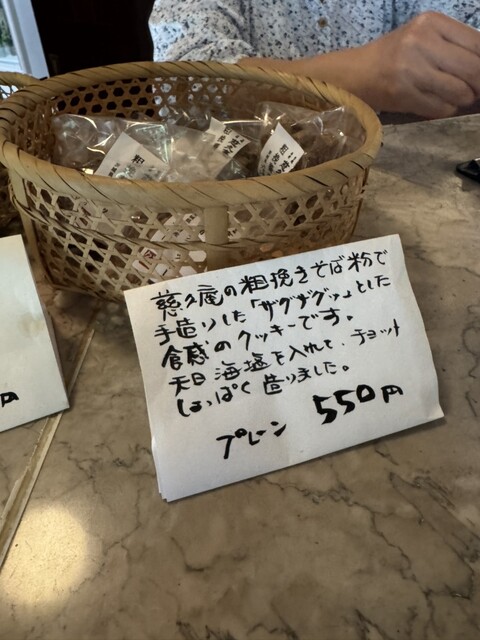 慈久庵の粗挽きそば粉で
手造りした「ザクザクッ」とした
食感のクッキーです。
天日海塩を入れて、チョット
しょっぱく造りました。
プレーン 550円
円